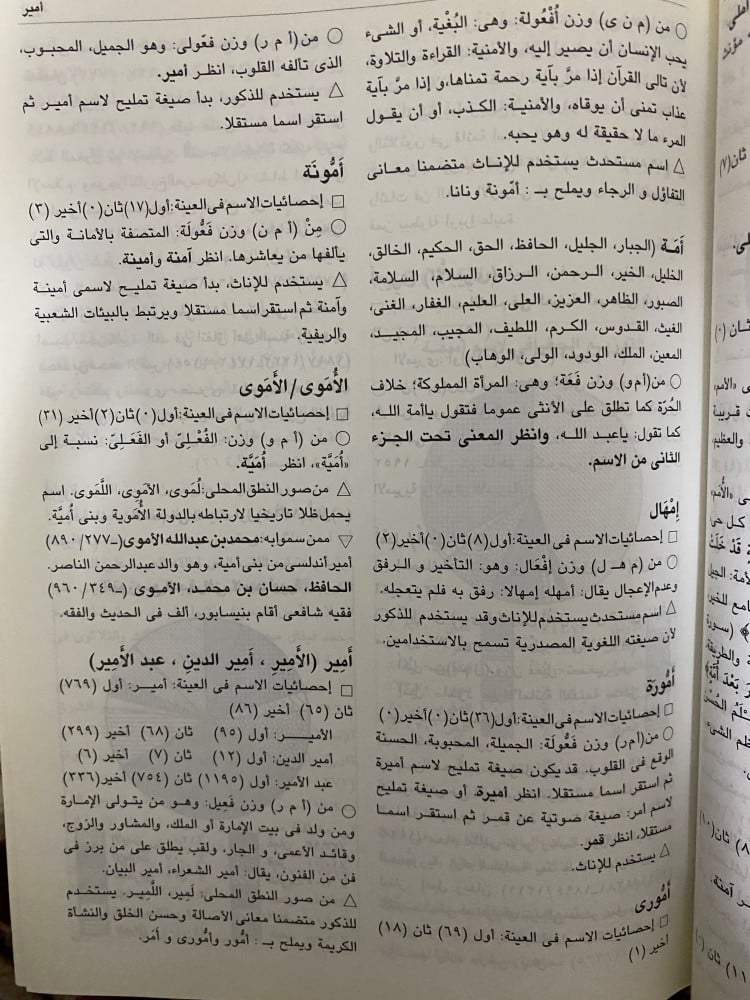 أمير
○ من (م ن ى) وزن أُفْعُولة: وهى: البُغْية، أو الشىء
يحب الإنسان أن يصير إليه، والأمنية: القراءة والتلاوة،
لأن تالى القرآن إذا مرَّ بآية رحمة تمناها، و إذا مرَّ بآية
عذاب تمنى أن يوقاه، والأمنية: الكذب، أو أن يقول
المرء ما لا حقيقة له وهو يحبه.
△ اسم مستحدث يستخدم للإناث متضمنا معانى
التفاؤل و الرجاء ويملح بـ : أمّونة ونانا.
أمَة (الجبار، الجليل، الحافظ، الحق، الحكيم، الخالق،
الخليل، الخير، الرحمن، الرزاق، السلام، السلامة،
الصبور، الظاهر، العزيز، العلى، العليم، الغفار، الغنى،
الغيث، القدوس، الكرم، اللطيف، المجيب، المجيد،
المعين، الملك، الودود، الولى، الوهاب)
○ من (أ م و) وزن فَعَة: وهى: المرأة المملوكة؛ خلاف
الحُرّة كما تطلق على الأنثى عموما فتقول ياأمة اللـه،
كما تقول: ياعبد اللـه، وانظر المعنى تحت الجزء
الثانى من الاسم.
إِمْهَال
□ إحصائيات الاسم فى العينة: أول (٨) ثان (٠) أخير (٢)
○ من (م هـ ل) وزن إفْعَال: وهو: التأخير و الرفق
وعدم الإعجال يقال: أمهله إمهالا: رفق به فلم يتعجله.
△ اسم مستحدث يستخدم للإناث وقد يستخدم للذكور
لأن صيغته اللغوية المصدرية تسمح بالاستخدامين.
أَمُّورَة
□ إحصائيات الاسم فى العينة: أول (٣٦) ثان (٠) أخير (٠)
○ من (أ م ر) وزن فَعُّولَة: الجميلة، المحبوبة، الحسنة
الوقع فى القلوب. قد يكون صيغة تمليح لاسم أميرة
ثم استقر اسما مستقلا. انظر أميرة. أو صيغة تمليح
لاسم امر: صيغة صوتية عن قمر ثم استقر اسما
مستقلا، انظر قمر.
△ يستخدم للإناث.
أَمُّورى
□ إحصائيات الاسم فى العينة: أول (٦٩) ثان (١٨)
أخير (١)
○ من (أ م ر) وزن فعّولى: وهو الجميل، المحبوب،
الذى تألفه القلوب، انظر أمير.
△ يستخدم للذكور، بدأ صيغة تمليح لاسم أمير ثم
استقر اسما مستقلا.
أَمُّونَة
□ إحصائيات الاسم فى العينة: أول (١٧) ثان (٠) أخير (٣)
○ مِنْ (أ م ن) وزن فَعُّولَة: المتصفة بالأمانة والتى
يألفها من يعاشرها. انظر آمنة وأمينة.
△ يستخدم للإناث، بدأ صيغة تمليح لاسمى أمينة
وآمنة ثم استقر اسما مستقلا ويرتبط بالبيئات الشعبية
والريفية.
الأُمَوى/الأَمَوى
□ إحصائيات الاسم فى العينة: أول (٠) ثان (٢) أخير (٣١)
○ من (أ م و) وزن: الفُعْلِىّ أو الفَعَلِىّ: نسبة إلى
«أُمَيَّة»، انظر أُمَيَّة.
△ من صور النطق المحلى: لُمَوى، الآمَوِى، اللَّمَوى. اسم
يحمل ظلا تاريخيا لارتباطه بالدولة الأُمَوية وبنى أُميَّة.
▽ ممن سموابه: محمد بن عبد اللـه الأموى (ـ٨٩٠/٢٧٧)
أمير أندلسى من بنى أمية، وهو والد عبدالرحمن الناصر.
الحافظ، حسان بن محمد، الأموى (ـ٩٦٠/٣٤٩)
فقيه شافعى أقام بنيسابور، ألف فى الحديث والفقه.
أَمِير (الأَمِيرِ ، أَمِير الدينِ ، عبد الأَمِير)
□ إحصائيات الاسم فى العينة: أميـر: أول (٧٦٩)
ثان (٦٥) أخير (٨٦)
الأميـــر: أول (٩٥) ثان (٦٨) أخير (٢٩٩)
أمير الدين: أول (١٢) ثان (٧) أخير (٦)
عبد الأمير: أول (١١٩٥) ثان (٧٥٤) أخير (٢٣٦)
○ من (أ م ر) وزن فَعِيل: وهو من يتولى الإمارة
ومن ولد فى بيت الإمارة أو الملك، والمشاور والزوج،
وقائد الأعمى، و الجار، ولقب يطلق على من برز فى
فن من الفنون، يقال: أمير الشعراء، أمير البيان.
△ من صور النطق المحلى: لَمِير، اللَّمِير. يستخدم
للذكور متضمنا معانى الأصالة وحسن الخلق والنشأة
الكريمة ويملح بـ : أمُّور وأمُّورى و أمَر.